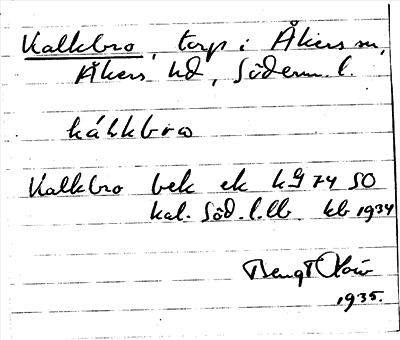 Kalkbro, torp i Åkers sn,
Åkers hd, Söderm. l.
kálkbrω
Kalkbro bek ek kg 74 50
kal. Söd. l. llb. kb 1934
Bengt
1935.